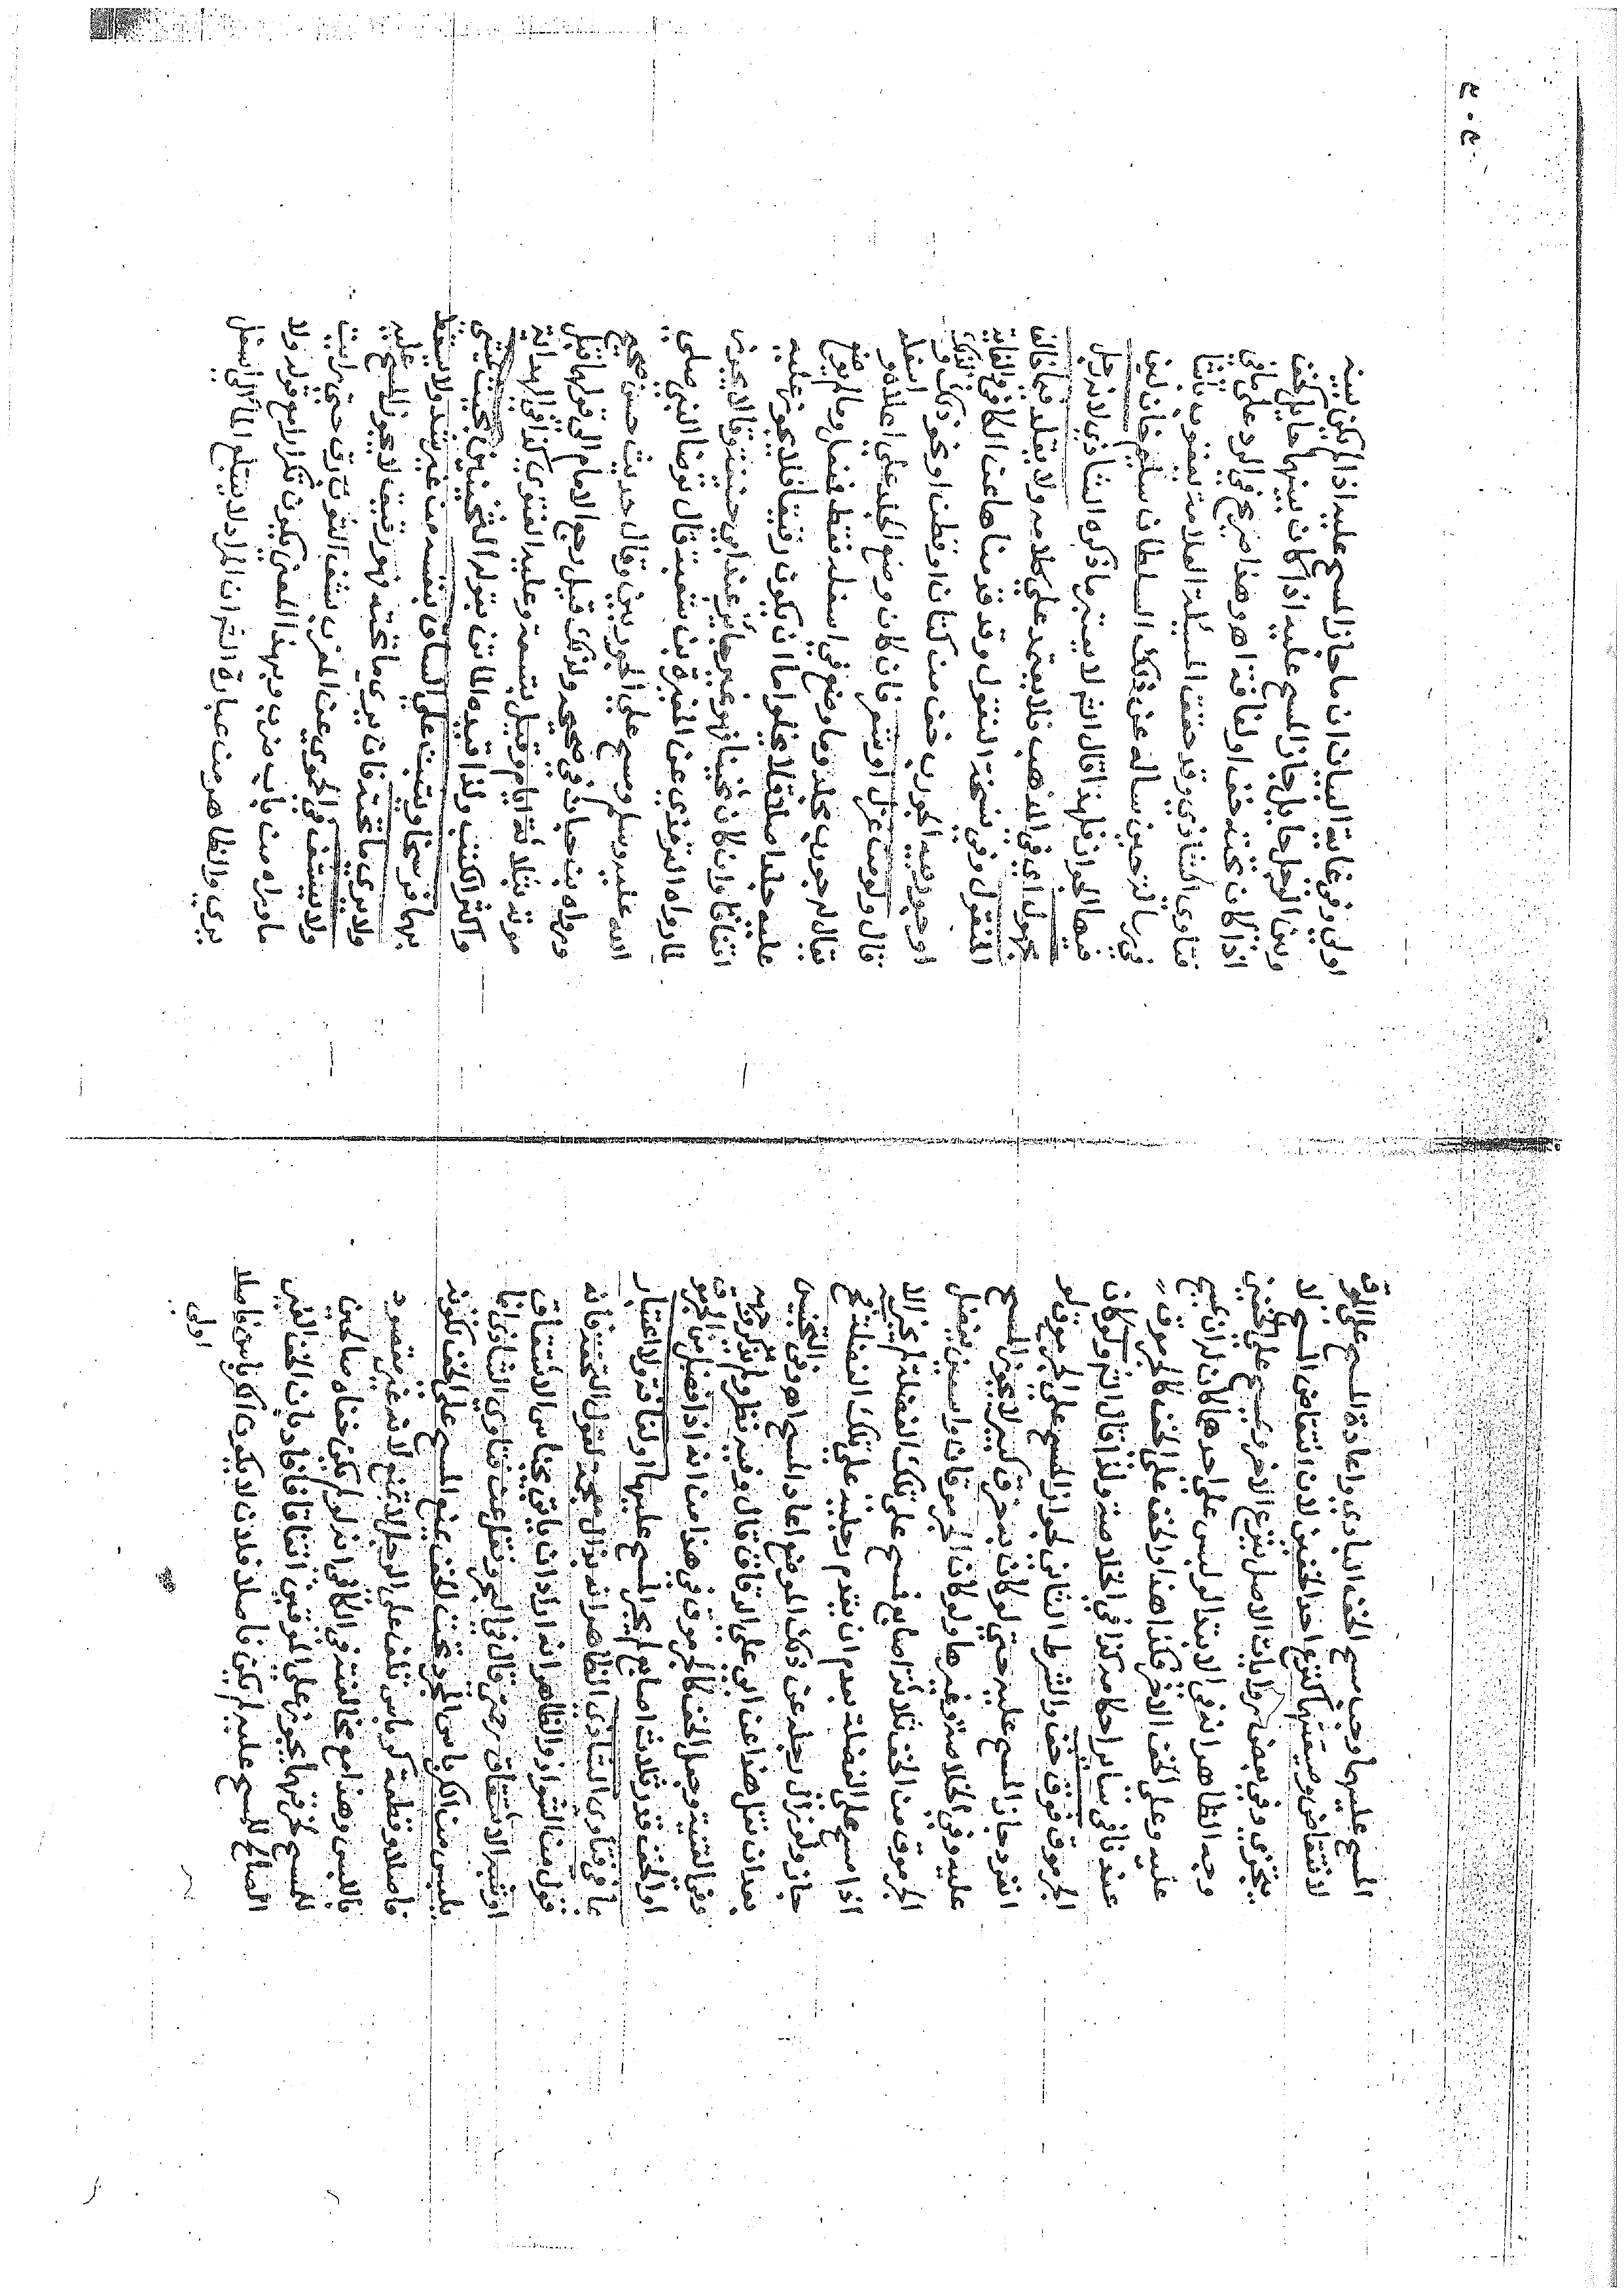 المسح عليهما وجب مسح الخف البادي واعادة المسح على الموق
لانتقاض وضيفتهما كنزع احد الخفين لان انتقاض المسح لا
يتجزي وفي بعض روايات الاصل ينزع الاخر ويمسح على الخفين
وجه الظاهر انه في الابتدا لو لبس على احدهما كان له ان يمسح
عليه وعلى الخف الاخر فكذا هذا والخف على الخف كالجرموق
عندنا في ساير احكامه كذا في الخلاصة ولذا قال الثم ولو كان
الجرموق فوق خف والشرط الثاني لجواز المسح على الجرموق لو
انفرد جاز المسح عليه حتى لو كان به خرق كبير لا يجوز المسح
عليه وفي الخلاصة وغيرها ولو كان الجرموقان واسعين يفضل
الجرموق من الخف ثلاثة اصابع فمسح على تلك الفضلة لم يجز الا
اذا مسح على الفضلة بعد ان يقدم رجليه على تلك الفضلة فح
جاز ولو زال رجله عن ذلك الموضع اعاد المسح اهـ وفي التجنيس
بعد ان نقل هذا عن ابي علي الدقاق قال وفيه نظر ولم يذكر وجهه
وفي القنية وجعل الخف كالجرموق في هذا من انه اذا فضل من الجرموق
او الخف قدر ثلاث اصابع لم يجز المسح عليها او لفافة ولا اعتبار
بما في فتاوى الشاذي الظاهر انه بذال معجمة لقول التحفة فانه
قول من الشواذ والظاهر انه اراد ان ياتي بجناس الاشتقاق
او شبه الاشتقاق رحمتي قال في البحر ونقل عن فتاوى الشاذي ان ما
يلبس من الكرباس المجرد تحت الخف يمنع المسح على الخف لكونه
فاصلا وقطعة كرباس تلف على الرجل لا تمنع لانه غير مقصود
باللبس وهذا مع مخالفته في الكافي انه لو لم يكن خفاه صالحين
للمسح لخرقهما يجوز على الموقين اتفاقا فافاد بان الخف الغير
الصالح للمسح عليه لم يكن فاصلا فلان لا يكون الكرباس فاصلا
اولى
اولى وفي غاية البيان ان ما جاز المسح عليه اذا لم يكن بينه
وبين الرجل حايل جاز المسح عليه اذا كان بينهما حايل كخف
اذا كان تحته خف او لفافة اهـ وهذا صريح في الرد على ما في
فتاوى الشاذي وقد حقق المسئلة العلامة يعقوب باشا
في رسالة حين ساله عن ذلك السلطان سليم خان ابن
فيها الجواز فلهذا قال الثم لا يعتبر ما ذكره الشاذي لانه رجل
مجهول اي في المذهب فلا يعتمد على كلامه ولا يقلد فيما خالف
المنقول وفي نسخة النقول وقد قدمناها عن الكافي والغاية
او جوربيه الجورب خف من كتان او قطن او نحو ذلك
قال ولو من غزل او شعر فان كان وضع الجلد على اعلاه و اسفله
يقال له جورب مجلد وما وضع في اسفله فقط فنعل وما لم يوضع
عليه جلد اصلا فلا يخلوا اما ان يكون رقيقا فلا يجوز عليه
اتفاقا وان كان ثخينا فهو غير جائز عند ابي حنيفة وقالا يجوز
لما رواه الترمذي عن المغيرة بن شعبة قال توضا النبي صلى
الله عليه وسلم ومسح على الجوربين وقال حديث حسن صحيح
ورواه بن حبان في صحيحه ولذلك قيل رجع الامام الى قولهما قبل
موته بثلاثة ايام وقيل بتسعة وعليه الفتوى كذا في الهداية
واكثر الكتب ولذا قيده الماتن بقوله الثخينين بحيث يمشي
بهما فرسخا ويثبت على الساق بنفسه من غير شد ولا يسقط
ولا يرى ما تحته فان يرى ما تحته فهو رقيق لا يجوز المسح عليه
ولا يشف في المحوي عن المغرب شف الثوب رق حتى رايت
ما وراه من باب ضرب وبهذا المعنى يكون تكرارا مع قوله ولا
يرى والظاهر من عبارة الثم ان المراد لا يبتلع الما الى اسفل